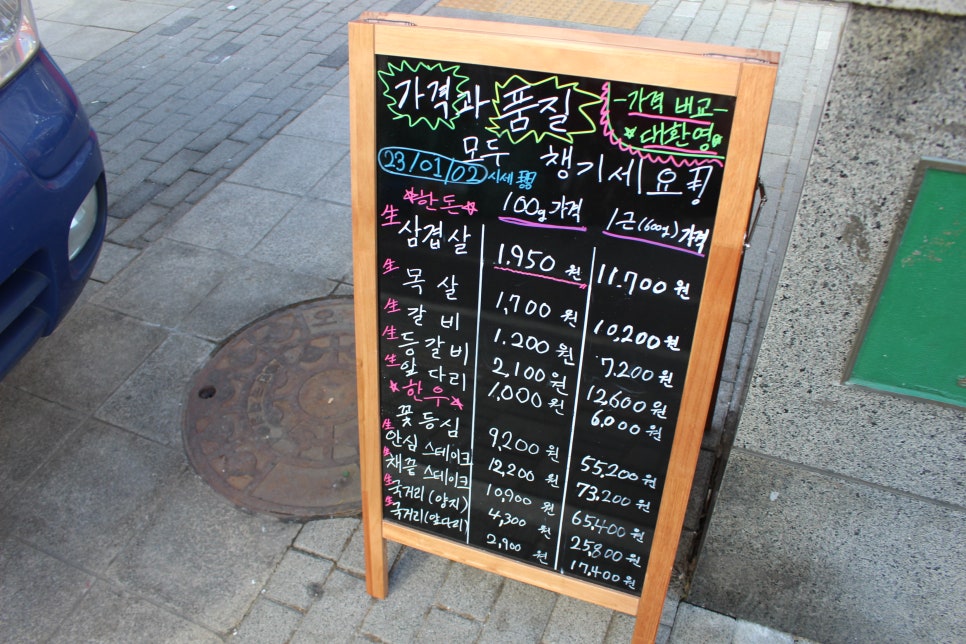 가격과 품질
모두 챙기세요!!
-가격 비교-
*대환영*
23/01/02 시세
*한돈* 100g 가격 1근(600g) 가격
生 삼겹살 1.950 원 11.700 원
生 목살 1,700 원 10,200 원
生 갈비 1.200 원 7,200 원
生 등갈비 2,100 원 12,600 원
生 앞다리 1,000 원 6,000 원
*한우*
꽃등심 9,200 원 55,200 원
生 안심 스테이크 12,200 원 73,200 원
生 채끝 스테이크 10,900 원 65,400 원
生 국거리(양지) 4,300 원 25,800 원
生 국거리(앞다리) 2,900 원 17,400 원